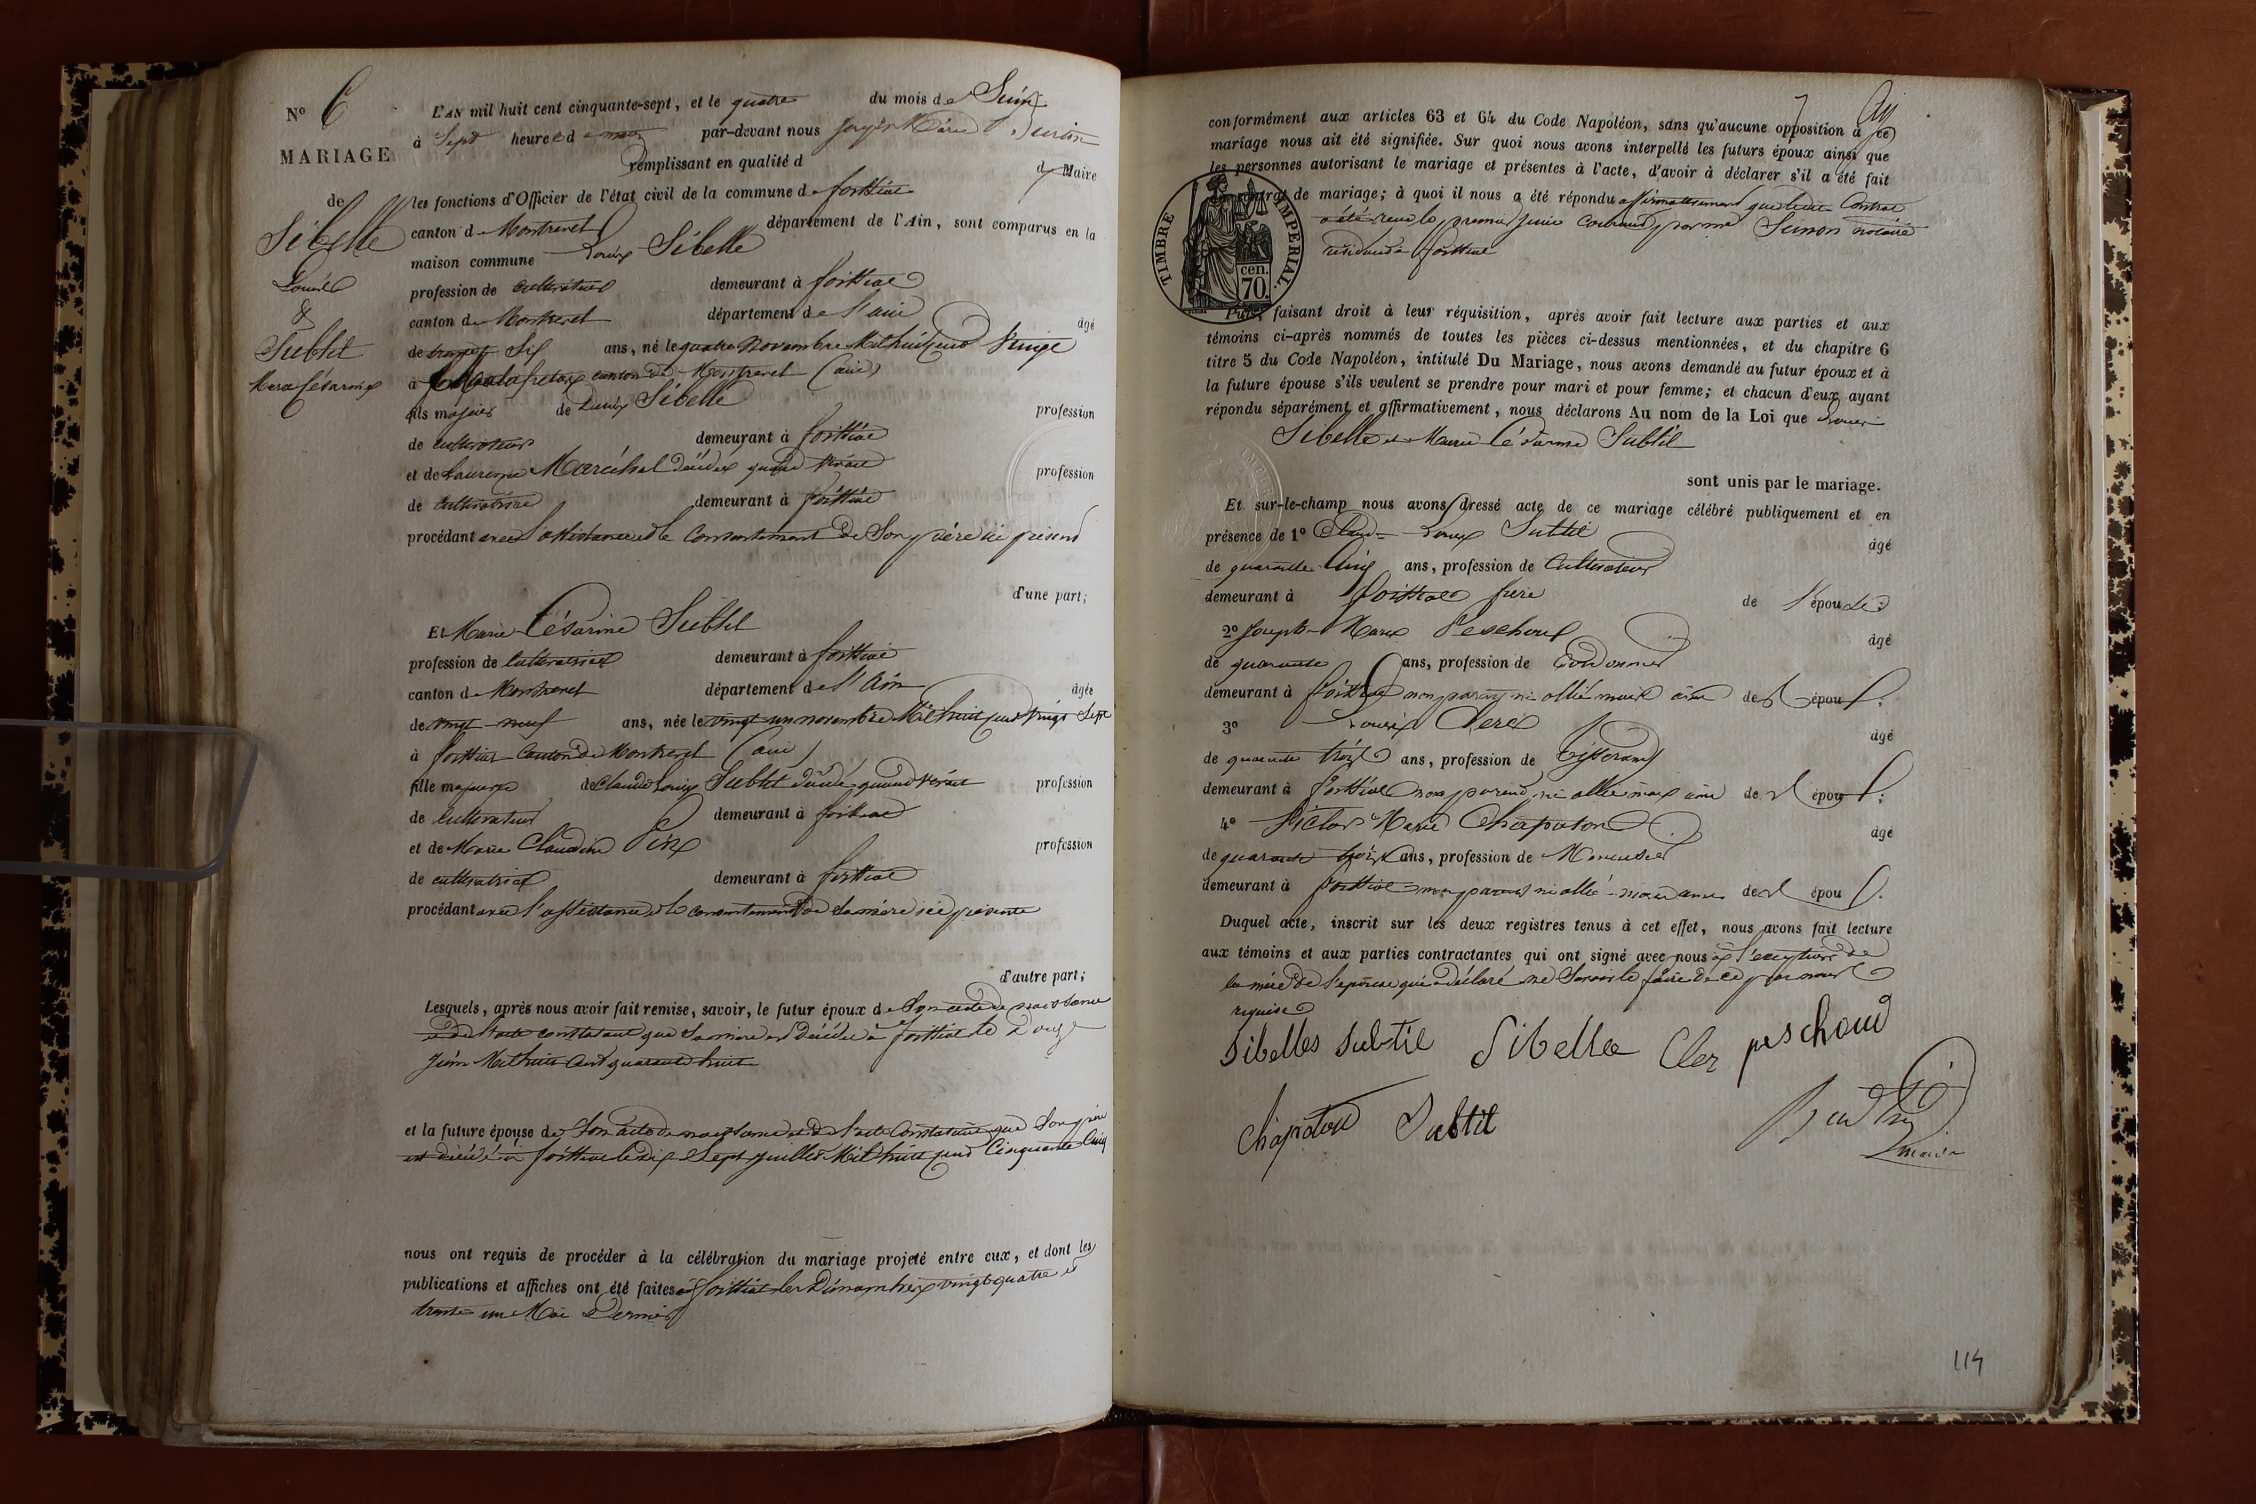 N° 6
MARIAGE
de
Sibelle
Louis
&
Subtil
Marie Césarine
L'AN mil huit cent cinquante-sept, et le quatre du mois de Juin
à Sept heures d par-devant nous Joseph Marie
remplissant en qualité d Maire
les fonctions d'Officier de l'état civil de la commune de foissiat
canton de Montrevel département de l'Ain, sont comparus en la
maison commune Louis Sibelle
profession de cultivateur demeurant à foissiat
canton de Montrevel département de l'ain âgé
de trente Six ans, né le quatre novembre Mil huit cent Vingt
à canton de Montrevel (ain)
fils majeur de Louis Sibelle profession
de cultivateur demeurant à foissiat
et de Laurence Maréchal décédée quand vivait profession
de cultivatrice demeurant à foissiat
procédant avec l'assistance et le consentement de Son père ici présent
d'une part;
Et Marie Césarine Subtil
profession de cultivatrice demeurant à foissiat
canton de Montrevel département de l'Ain âgée
de vingt neuf ans, née le vingt un novembre Mil huit cent vingt Sept
à foissiat canton de Montrevel (ain)
fille majeure de Claude Louis Subtil décédé quand vivait profession
de cultivateur demeurant à foissiat
et de Marie Claudine Pin profession
de cultivatrice demeurant à foissiat
procédant avec l'assistance et le consentement de sa mère ici présente
d'autre part;
Lesquels, après nous avoir fait remise, savoir, le futur époux de Son acte de naissance
et de l'acte constatant que Sa mère est décédée à foissiat le douze
Juin Mil huit Cent quarante huit
et la future épouse de Son acte de naissance et de l'acte Constatant que Son père
est décédé à foissiat le dix Sept juillet Mil huit cent Cinquante Cinq
nous ont requis de procéder à la célébration du mariage projeté entre eux, et dont les
publications et affiches ont été faites à foissiat les Dimanches vingt quatre et
trente un Mai Dernier
conformément aux articles 63 et 64 du Code Napoléon, sans qu'aucune opposition à ce
mariage nous ait été signifiée. Sur quoi nous avons interpellé les futurs époux ainsi que
les personnes autorisant le mariage et présentes à l'acte, d'avoir à déclarer s'il a été fait
contrat de mariage; à quoi il nous a été répondu affirmativement que ledit Contrat
a été reçu le premier Juin courant par me Simon notaire
résidant à foissiat
TIMBRE IMPERIAL.
70 cen.
Puis, faisant droit à leur réquisition, après avoir fait lecture aux parties et aux
témoins ci-après nommés de toutes les pièces ci-dessus mentionnées, et du chapitre 6
titre 5 du Code Napoléon, intitulé Du Mariage, nous avons demandé au futur époux et à
la future épouse s'ils veulent se prendre pour mari et pour femme; et chacun d'eux ayant
répondu séparément et affirmativement, nous déclarons Au nom de la Loi que Louis
Sibelle et Marie Césarine Subtil
sont unis par le mariage.
Et sur-le-champ nous avons dressé acte de ce mariage célébré publiquement et en
présence de 1° Claude Louis Subtil âgé
de quarante Cinq ans, profession de Cultivateur
demeurant à foissiat frère de l'épouse;
2° Joseph Marie Peschoud âgé
de quarante ans, profession de Cordonnier
demeurant à foissiat non parent ni allié mais ami de l épou ;
3° Louis Clerc âgé
de quarante trois ans, profession de Tisserand
demeurant à foissiat non parent ni allié mais ami de l épou ;
4° Victor Marie Chapaton âgé
de quarante trois ans, profession de Menuisier
demeurant à foissiat non parent ni allié mais ami de l épou .
Duquel acte, inscrit sur les deux registres tenus à cet effet, nous avons fait lecture
aux témoins et aux parties contractantes qui ont signé avec nous à l'exception de
la mère de l'épouse qui a déclaré ne Savoir le faire de ce par nous
requise
Sibelles Subtil Sibelle Cler peschoud
Chapaton Subtil
maire
114